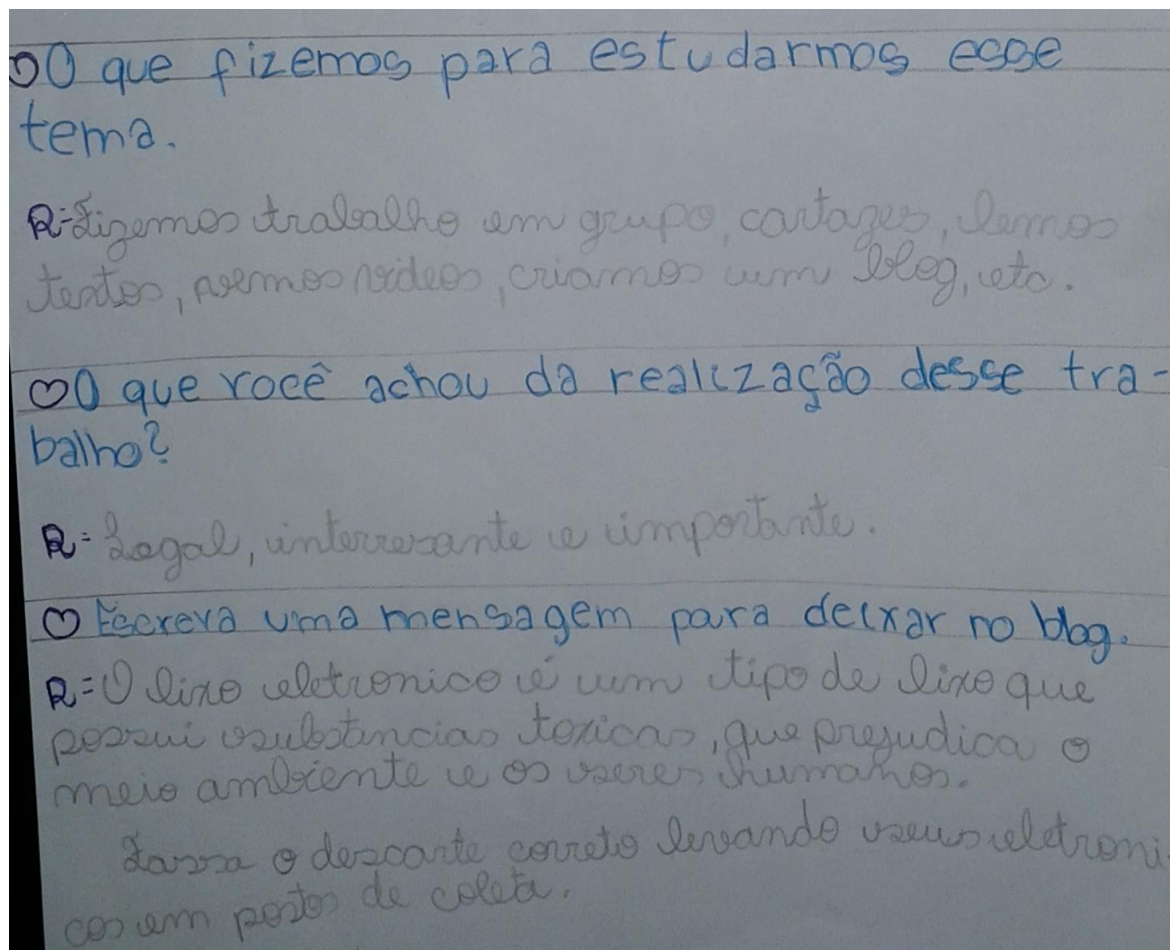 ♡O que fizemos para estudarmos esse
tema.
R=Fizemos trabalho em grupo, cartazes, lemos
textos, vemos videos, criamos um blog, etc.
♡O que você achou da realização desse tra-
balho?
R= Legal, interresante e importante.
♡ Escreva uma mensagem para deixar no blog.
R=O lixo eletronico é um tipo de lixo que
possui substancias toxicas, que prejudica o
meio ambiente e os seres humanos.
Fassa o descarte correto levando seus eletroni-
cos em postos de coleta.